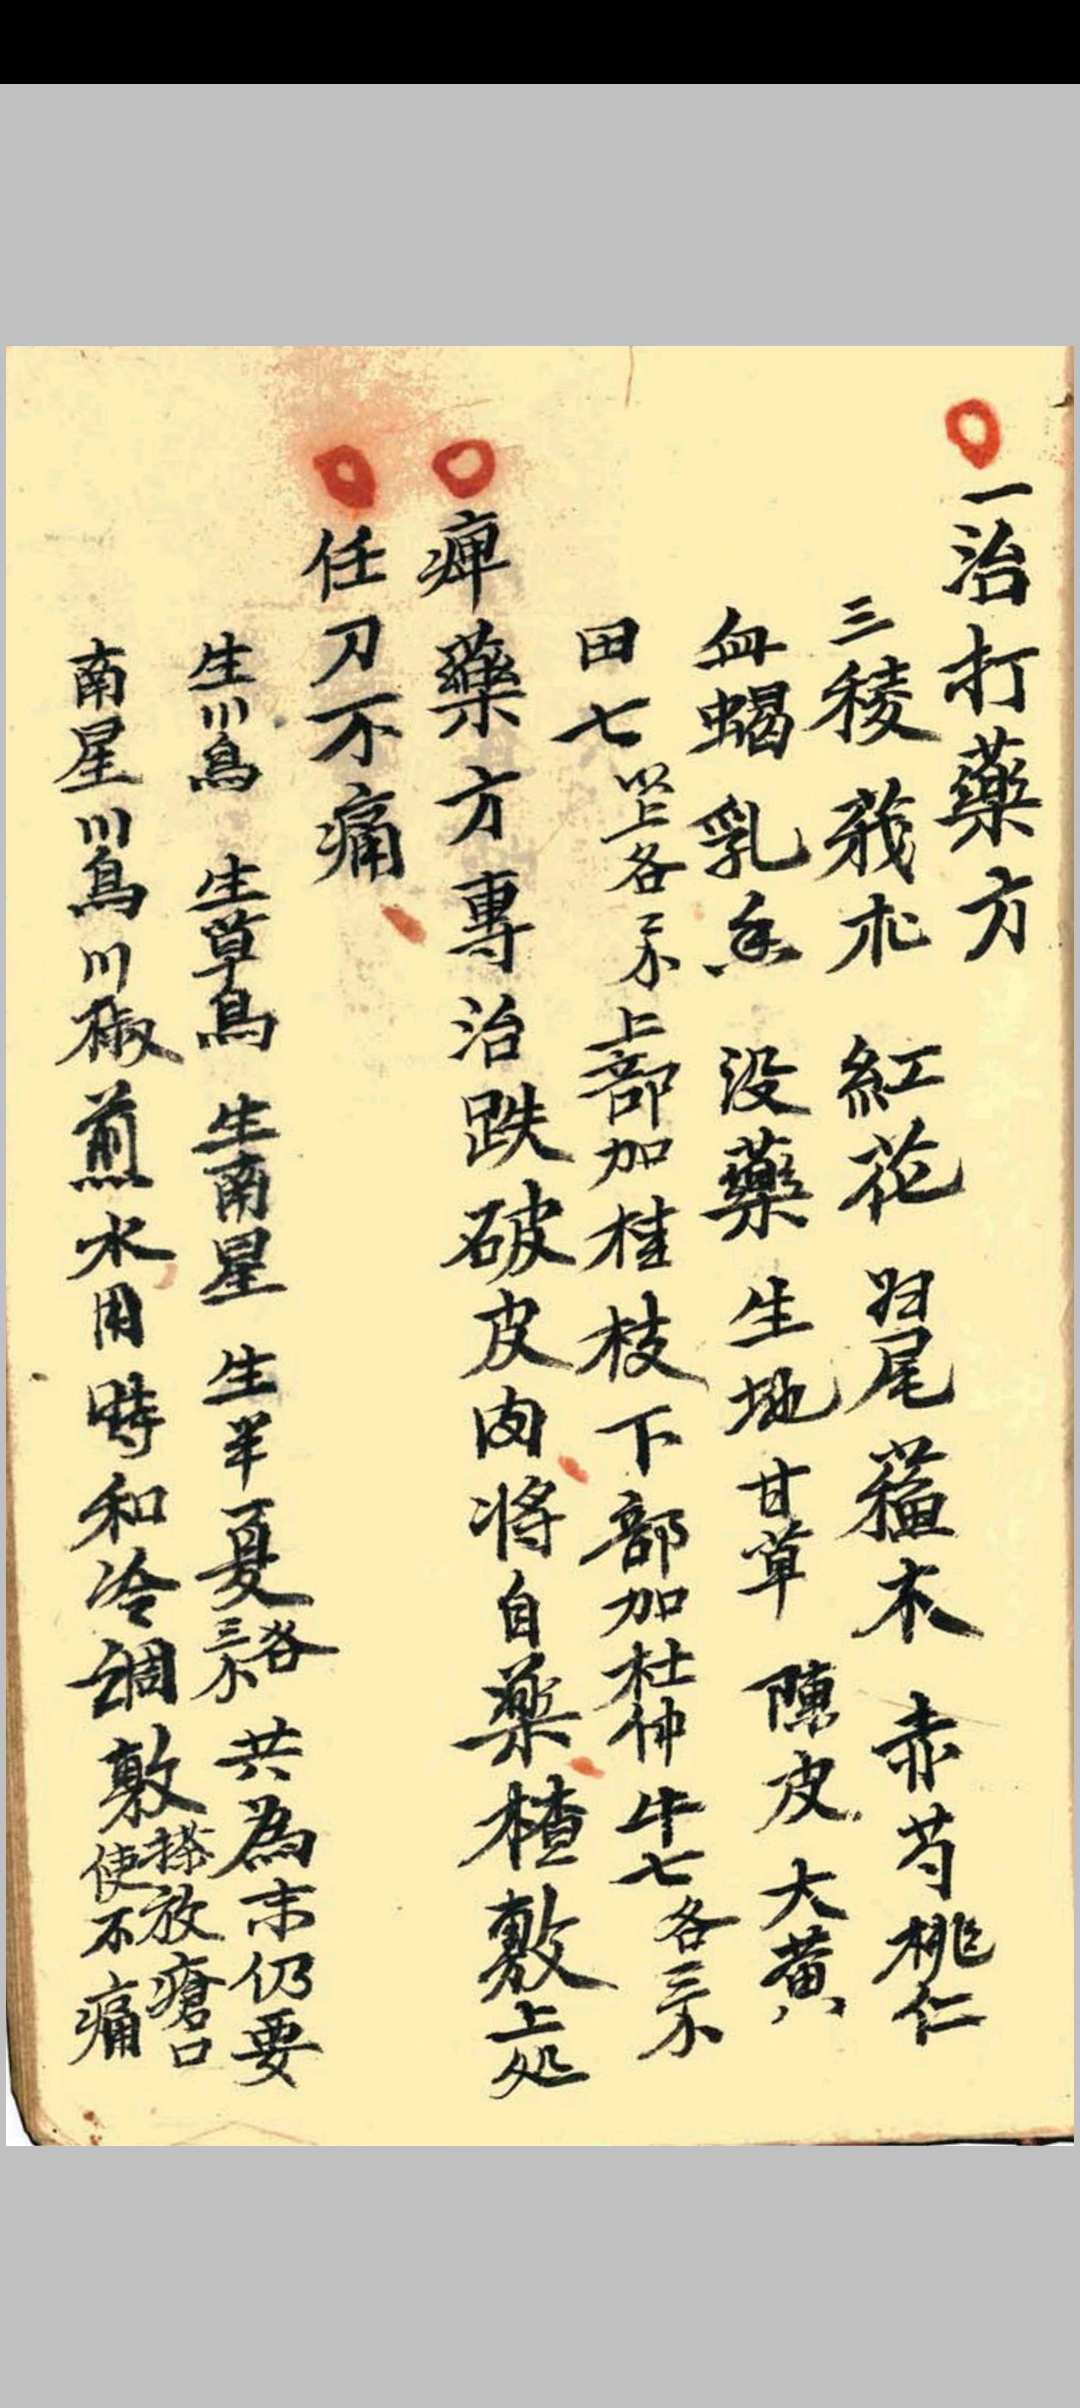 一治打藥方
三稜 莪朮 紅花 归尾 蘓木 赤芍 桃仁
血蝎 乳香 没藥 生地 甘草 陳皮 大黄
田七 以上各 上部加桂枝 下部加杜仲 牛七 各三
藥方專治跌破皮肉將自藥楂敷上処
任刀不痛
生川烏 生草烏 生南星 生半夏 各三 共為末仍要
南星川烏川椒煎水用時和冷調敷 搽放瘡口使不痛